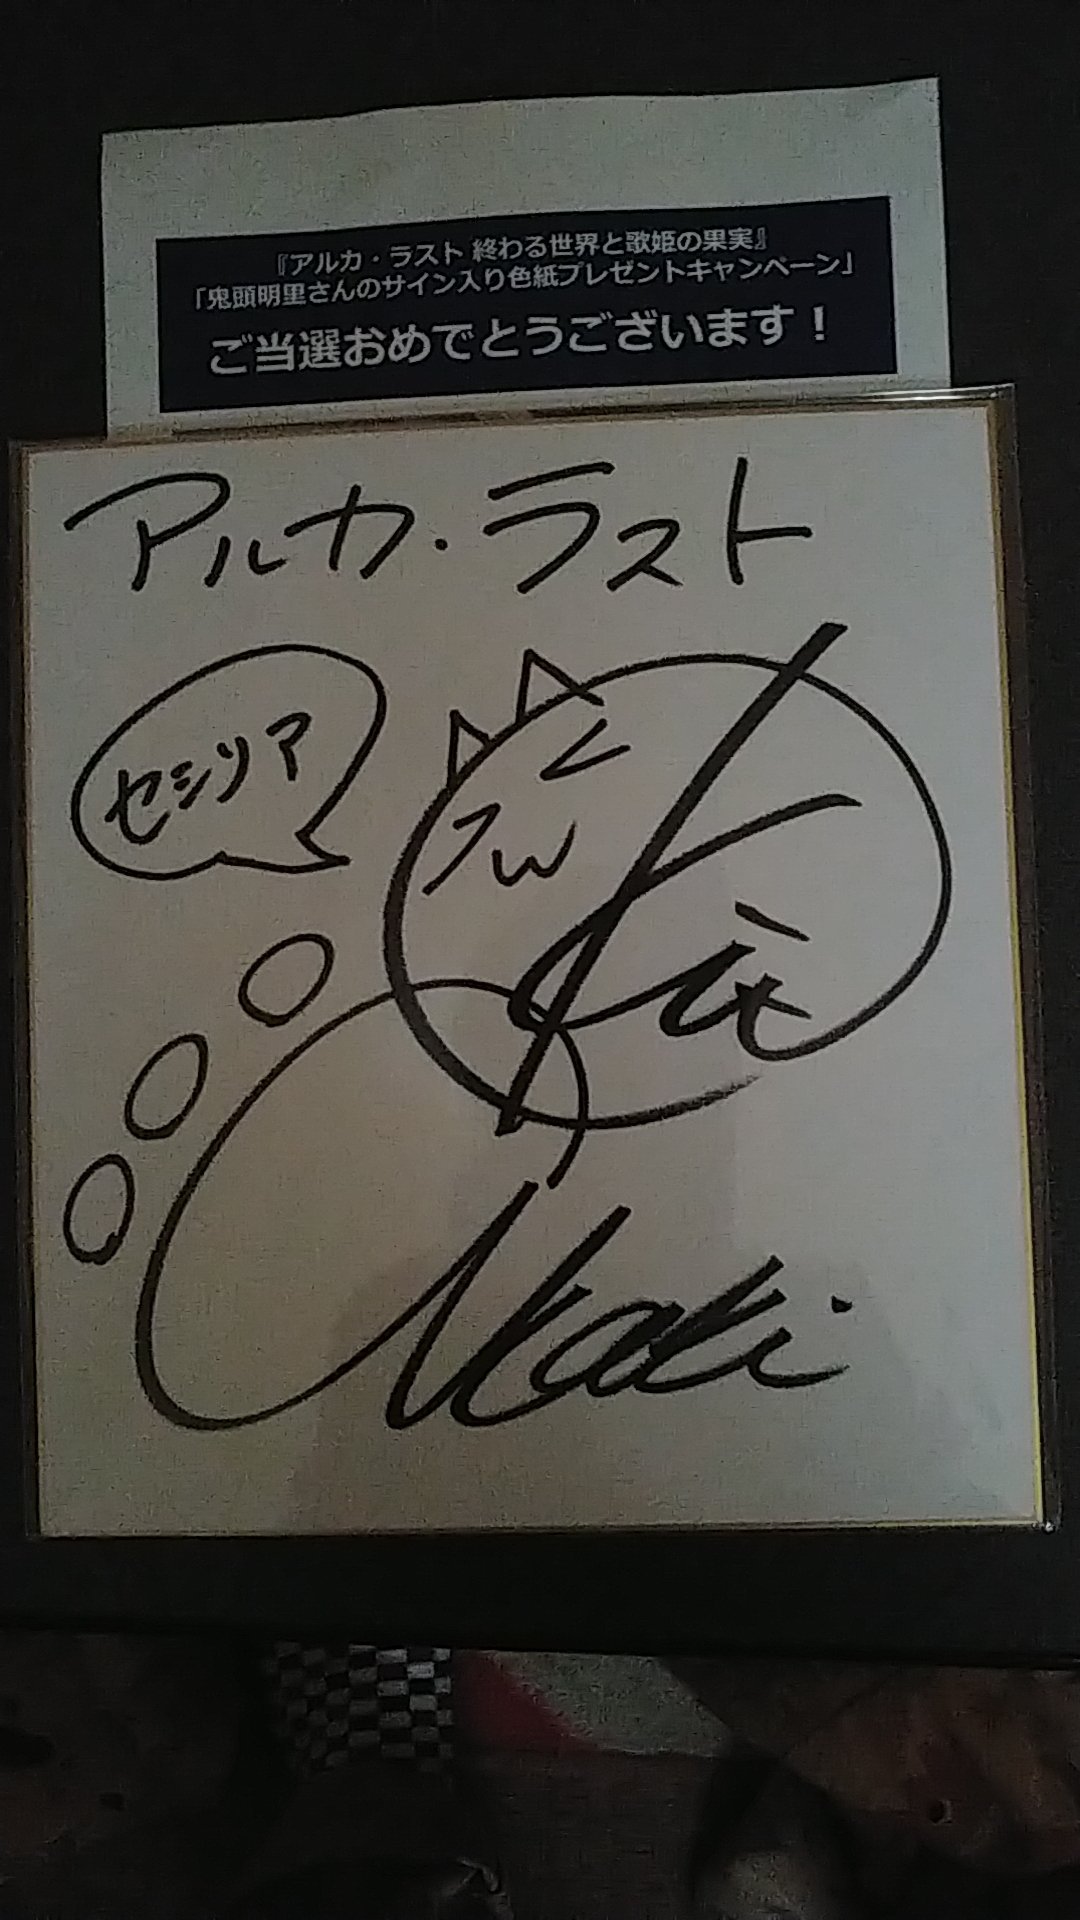 『アルカ・ラスト 終わる世界と歌姫の果実』
「鬼頭明里さんのサイン入り色紙プレゼントキャンペーン」
ご当選おめでとうございます！
アルカ・ラスト
セシリア
Akari